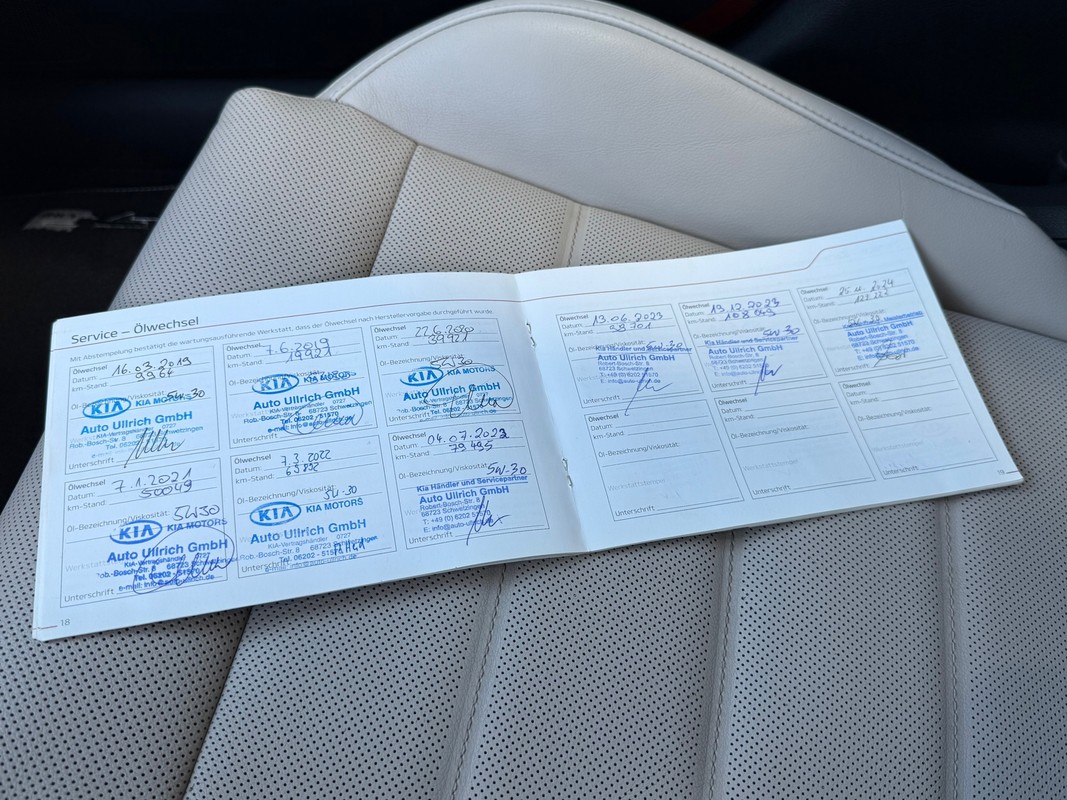 Service – Ölwechsel
Mit Abstempelung bestätigt die wartungsausführende Werkstatt, dass der Ölwechsel nach Herstellervorgabe durchgeführt wurde.
Ölwechsel
Datum: 16.03.2019
km-Stand: 9964
Öl-Bezeichnung/Viskosität: 5W-30
KIA KIA MOTORS
Auto Ullrich GmbH
Rob.-Bosch-Str. 8
Unterschrift
Ölwechsel
Datum: 7.6.2019
km-Stand: 19921
KIA KIA MOTORS
Auto Ullrich GmbH
KIA-Vertragshändler 0727
Rob.-Bosch-Str. 8 68723 Schwetzingen
Tel. 06202 - 51570
Unterschrift
Ölwechsel
Datum: 22.6.2020
km-Stand: 39921
Öl-Bezeichnung/Viskosität: 5W30
KIA KIA MOTORS
Auto Ullrich GmbH
Tel. 06202 - 51570
Unterschrift
Ölwechsel
Datum: 7.1.2021
km-Stand: 50049
Öl-Bezeichnung/Viskosität: 5W30
KIA KIA MOTORS
Auto Ullrich GmbH
KIA-Vertragshändler 0727
Rob.-Bosch-Str. 8 68723 Schwetzingen
Tel. 06202 - 51570
e-mail: info@auto-ullrich.de
Unterschrift
Ölwechsel
Datum: 7.3.2022
km-Stand: 63892
Öl-Bezeichnung/Viskosität: 5W-30
KIA KIA MOTORS
Auto Ullrich GmbH
KIA-Vertragshändler 0727
Rob.-Bosch-Str. 8 68723 Schwetzingen
Tel. 06202 - 51570
e-mail: info@auto-ullrich.de
Unterschrift
Ölwechsel
Datum: 04.07.2022
km-Stand: 79495
Öl-Bezeichnung/Viskosität: 5W-30
Kia Händler und Servicepartner
Auto Ullrich GmbH
Robert-Bosch-Str. 8
68723 Schwetzingen
T: +49 (0) 6202 51570
E: info@auto-ullrich.de
Unterschrift
18
Ölwechsel
Datum: 13.06.2023
km-Stand: 98701
Öl-Bezeichnung/Viskosität: 5W-30
Kia Händler und Servicepartner
Auto Ullrich GmbH
Robert-Bosch-Str. 8
68723 Schwetzingen
T: +49 (0) 6202 51570
E: info@auto-ullrich.de
Unterschrift
Ölwechsel
Datum: 19.12.2023
km-Stand: 108
Öl-Bezeichnung/Viskosität: 5W-30
Kia Händler und Servicepartner
Auto Ullrich GmbH
Robert-Bosch-Str. 8
68723 Schwetzingen
T: +49 (0) 6202 51570
E: info@auto-ullrich.de
Unterschrift
Ölwechsel
Datum: 2024
km-Stand:
Auto Ullrich GmbH
Robert-Bosch-Str. 8
68723 Schwetzingen
Unterschrift
Ölwechsel
Datum:
km-Stand:
Öl-Bezeichnung/Viskosität:
Werkstattstempel
Unterschrift
Ölwechsel
Datum:
km-Stand:
Öl-Bezeichnung/Viskosität:
Werkstattstempel
Unterschrift
Ölwechsel
Datum:
km-Stand:
Öl-Bezeichnung/Viskosität:
Werkstattstempel
Unterschrift
19